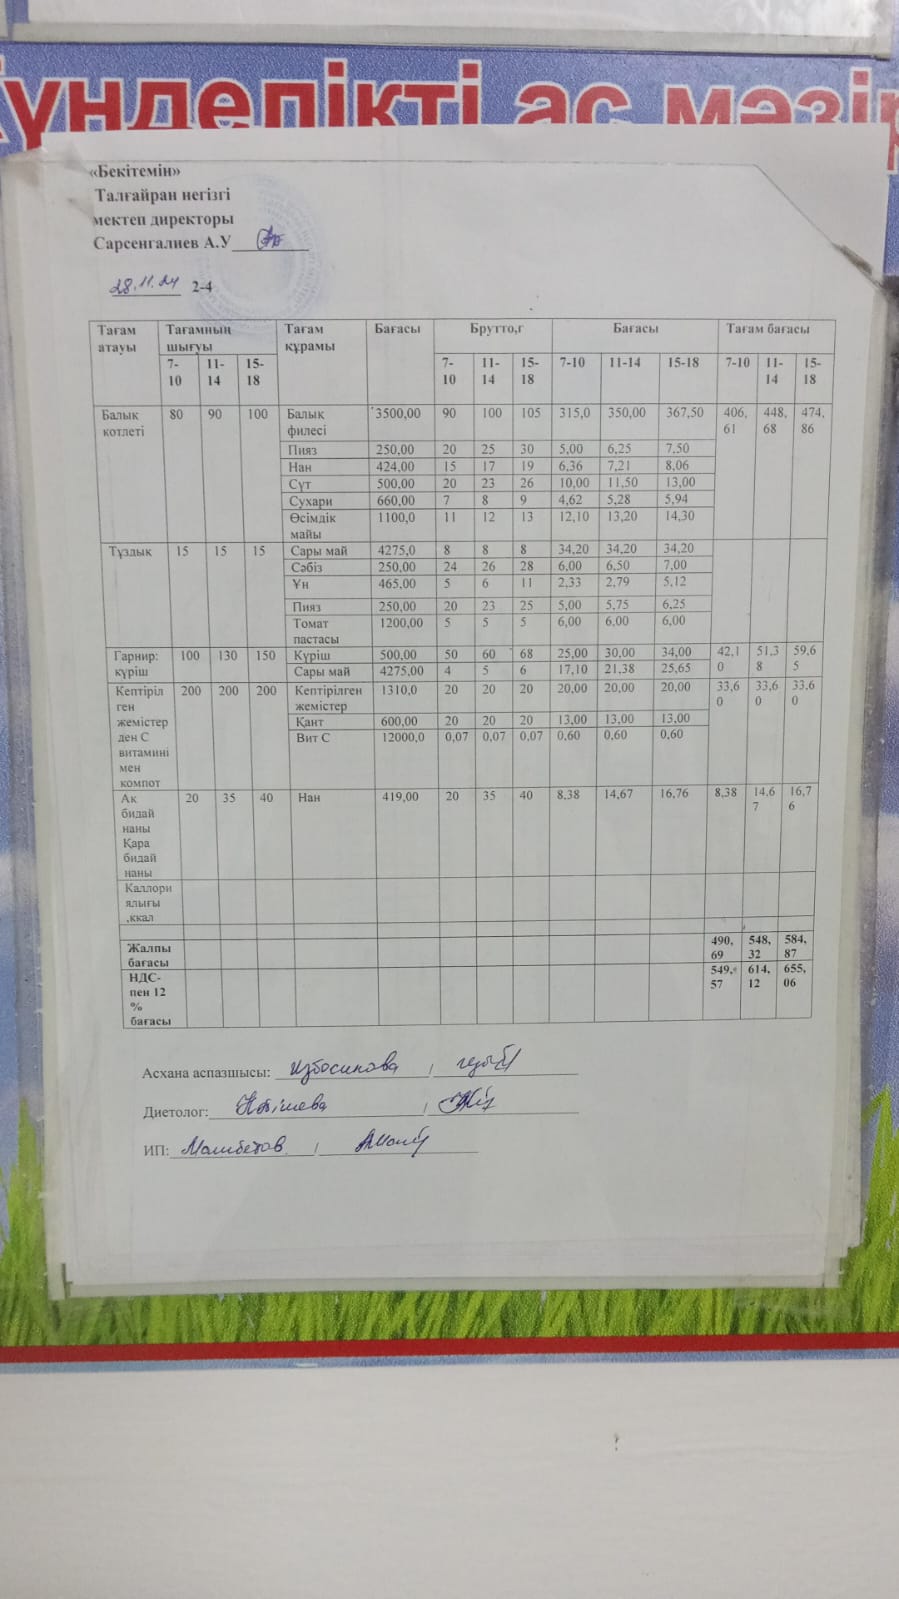 Күнделікті ас мәзір
«Бекітемін»
Талғайран негізгі
мектеп директоры
Сарсенгалиев А.У
28.11.24 2-4
Тағам атауы Тағамның шығуы Тағам құрамы Бағасы Брутто,г Бағасы Тағам бағасы
7-10 11-14 15-18 7-10 11-14 15-18 7-10 11-14 15-18 7-10 11-14 15-18
Балық котлеті 80 90 100 Балық филесі 3500,00 90 100 105 315,0 350,00 367,50 406,61 448,68 474,86
Пияз 250,00 20 25 30 5,00 6,25 7,50
Нан 424,00 15 17 19 6,36 7,21 8,06
Сүт 500,00 20 23 26 10,00 11,50 13,00
Сухари 660,00 7 8 9 4,62 5,28 5,94
Өсімдік майы 1100,0 11 12 13 12,10 13,20 14,30
Тұздық 15 15 15 Сары май 4275,0 8 8 8 34,20 34,20 34,20
Сәбіз 250,00 24 26 28 6,00 6,50 7,00
Ұн 465,00 5 6 11 2,33 2,79 5,12
Пияз 250,00 20 23 25 5,00 5,75 6,25
Томат пастасы 1200,00 5 5 5 6,00 6,00 6,00
Гарнир: күріш 100 130 150 Күріш 500,00 50 60 68 25,00 30,00 34,00 42,10 51,38 59,65
Сары май 4275,00 4 5 6 17,10 21,38 25,65
Кептірілген жемістерден С витамині мен компот 200 200 200 Кептірілген жемістер 1310,0 20 20 20 20,00 20,00 20,00 33,60 33,60 33,60
Қант 600,00 20 20 20 13,00 13,00 13,00
Вит С 12000,0 0,07 0,07 0,07 0,60 0,60 0,60
Ақ бидай наны Қара бидай наны 20 35 40 Нан 419,00 20 35 40 8,38 14,67 16,76 8,38 14,67 16,76
Каллориялығы ,ккал
Жалпы бағасы 490,69 548,32 584,87
НДС-пен 12 % бағасы 549,57 614,12 655,06
Асхана аспазшысы:
Диетолог:
ИП: Мамбетов